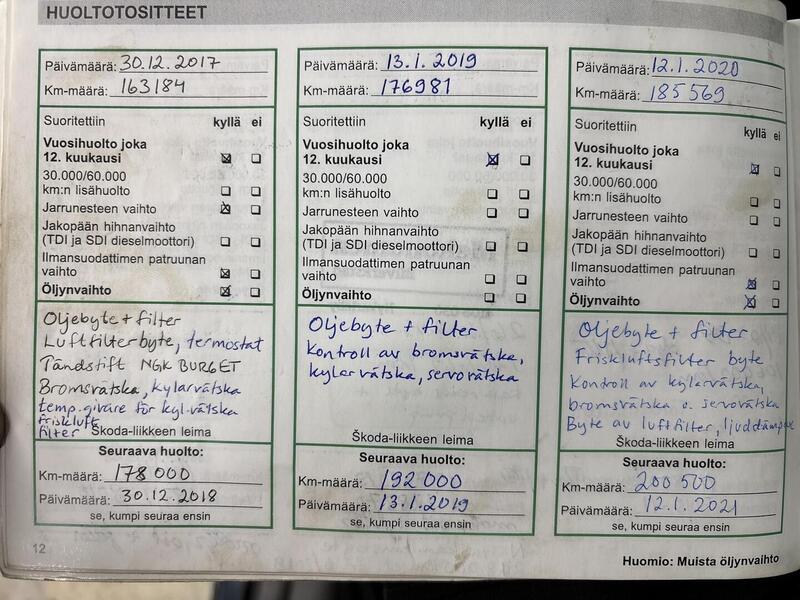 HUOLTOTOSITTEET
Päivämäärä: 30.12.2017
Km-määrä: 163184
Suoritettiin kyllä ei
Vuosihuolto joka
12. kuukausi
30.000/60.000
km:n lisähuolto
Jarrunesteen vaihto
Jakopään hihnanvaihto
(TDI ja SDI dieselmoottori)
Ilmansuodattimen patruunan
vaihto
Öljynvaihto
Oljebyte + filter
Luftfilterbyte, termostat
Tändstift NGK BURGET
Bromsvätska, kylarvätska
temp.givare för kyl.vätska
friskluft
filter
Škoda-liikkeen leima
Seuraava huolto:
Km-määrä: 178000
Päivämäärä: 30.12.2018
se, kumpi seuraa ensin
12
Päivämäärä: 13.1.2019
Km-määrä: 176981
Suoritettiin kyllä ei
Vuosihuolto joka
12. kuukausi
30.000/60.000
km:n lisähuolto
Jarrunesteen vaihto
Jakopään hihnanvaihto
(TDI ja SDI dieselmoottori)
Ilmansuodattimen patruunan
vaihto
Öljynvaihto
Oljebyte + filter
Kontroll av bromsvätska,
kylarvätska, servovätska
Škoda-liikkeen leima
Seuraava huolto:
Km-määrä: 192000
Päivämäärä: 13.1.2019
se, kumpi seuraa ensin
Päivämäärä: 12.1.2020
Km-määrä: 185569
Suoritettiin kyllä ei
Vuosihuolto joka
12. kuukausi
30.000/60.000
km:n lisähuolto
Jarrunesteen vaihto
Jakopään hihnanvaihto
(TDI ja SDI dieselmoottori)
Ilmansuodattimen patruunan
vaihto
Öljynvaihto
Oljebyte + filter
Friskluftsfilter byte
Kontroll av kylarvätska,
bromsvätska o. servovätska
Byte av luftfilter,
Škoda-liikkeen leima
Seuraava huolto:
Km-määrä: 200 500
Päivämäärä: 12.1.2021
se, kumpi seuraa ensin
Huomio: Muista öljynvaihto